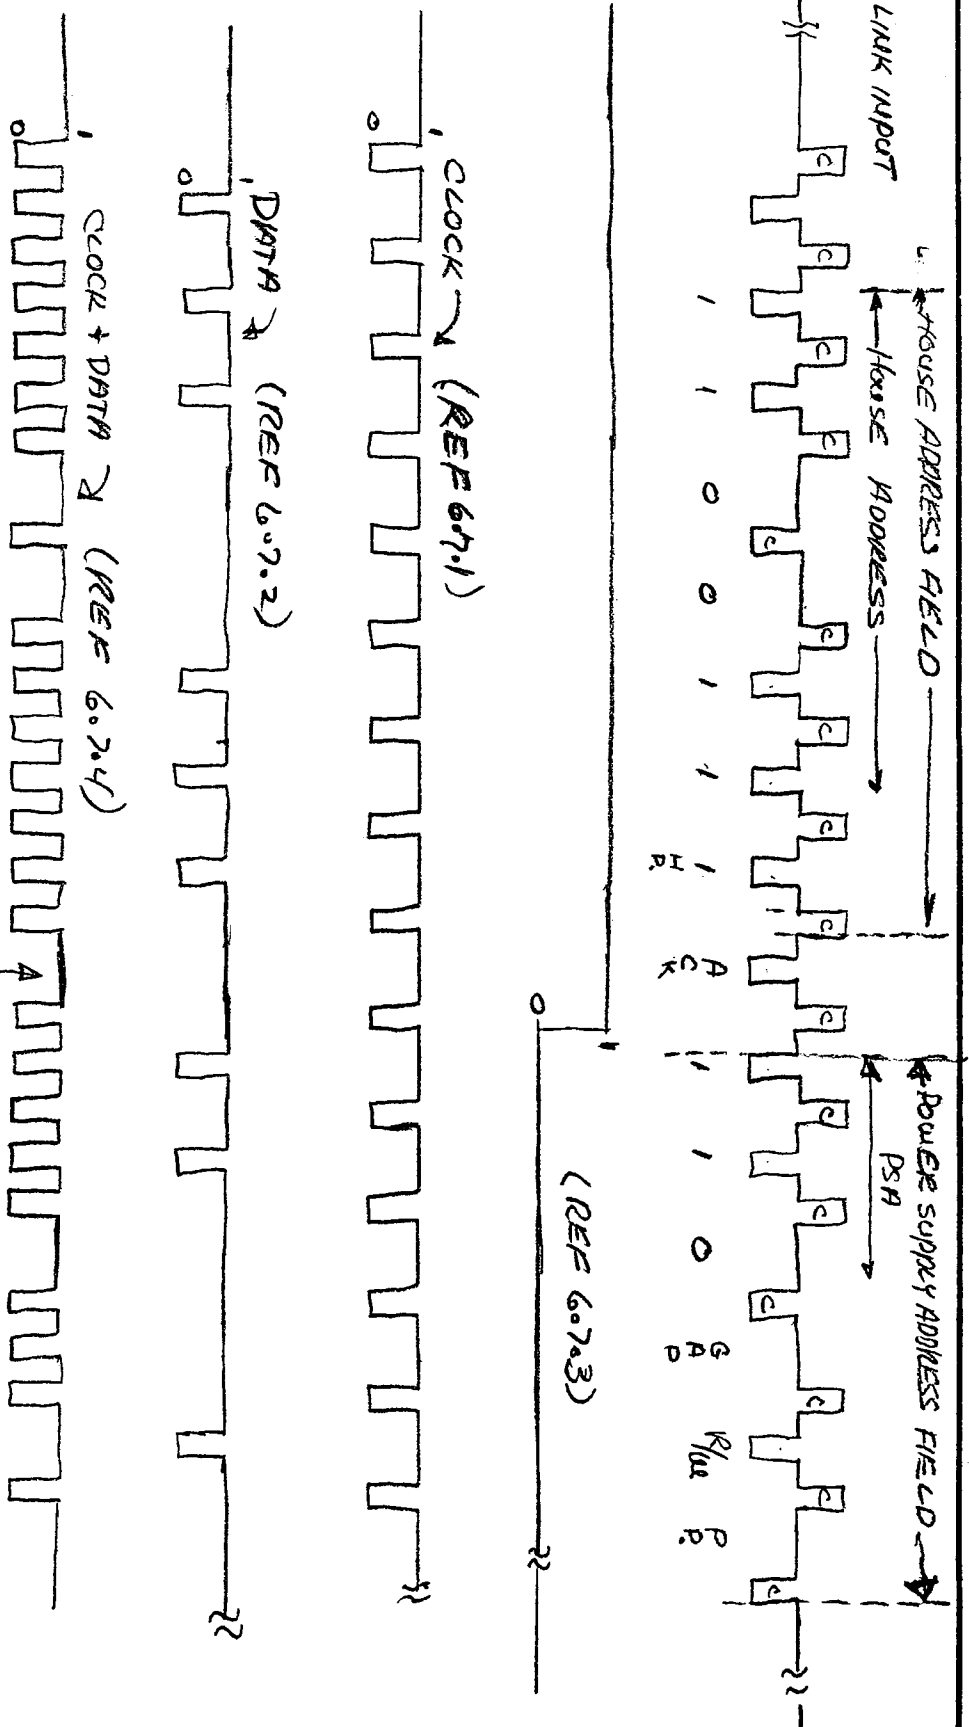 LINK INPUT
HOUSE ADDRESS FIELD
POWER SUPPLY ADDRESS FIELD
HOUSE ADDRESS
PSA
C C C C C C C C C C C C C C C
1 1 0 0 1 1 1 ACK 1 1 0 GAP R/W PP.
HP.
(REF 6.7.3)
1
0
1 CLOCK (REF 6.7.1)
0
1 DATA (REF 6.7.2)
0
1 CLOCK + DATA (REF 6.7.4)
0